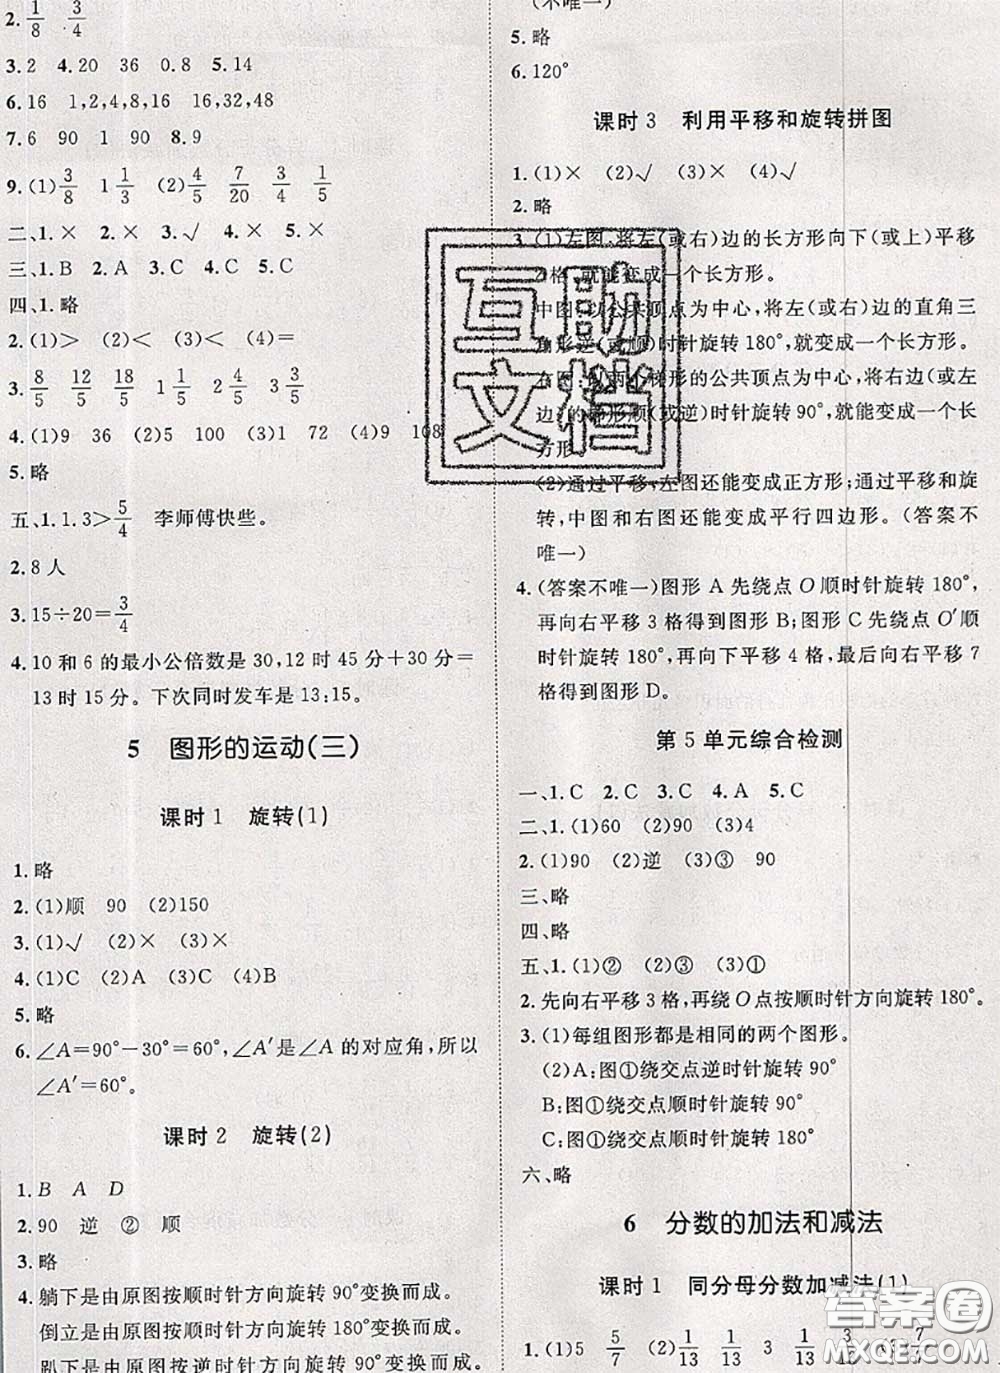 2. 1/8 3/4
3. 2 4. 20 36 0.8 5. 14
6. 16 1,2,4,8,16 16,32,48
7. 6 90 1 90 8. 9
9. (1) 3/8 1 1/3 (2) 4/5 7/20 3/4 1/5
二、1. × 2. × 3. √ 4. × 5. ×
三、1. B 2. A 3. C 4. B 5. C
四、1. 略
2. (1)> (2)< (3)< (4)=
3. 8/5 12/5 18/5 1 1/5 2 2/5 3 3/5
4. (1)9 36 (2)5 100 (3)1 72 (4)9 108
5. 略
五、1. 1.3>5/4 李师傅快些。
2. 8人
3. 15÷20=3/4
4. 10 和 6 的最小公倍数是 30,12 时 45 分+30 分=
13 时 15 分。下次同时发车是 13:15。
5 图形的运动(三)
课时 1 旋转(1)
1. 略
2. (1)顺 90 (2)150
3. (1)√ (2)× (3)×
4. (1)C (2)A (3)C (4)B
5. 略
6. ∠A=90°-30°=60°,∠A′是∠A 的对应角,所以
∠A′=60°。
课时 2 旋转(2)
1. B A D
2. 90 逆 ② 顺
3. 略
4. 躺下是由原图按顺时针方向旋转 90°变换而成。
倒立是由原图按顺时针方向旋转 180°变换而成。
趴下是由原图按逆时针方向旋转 90°变换而成。
(不唯一)
5. 略
6. 120°
课时 3 利用平移和旋转拼图
1. (1)× (2)√ (3)× (4)√
2. 略
3. (1)左图:将左(或右)边的长方形向下(或上)平移
格,就能变成一个长方形。
中图:以公共顶点为中心,将左(或右)边的直角三
角形逆(或顺)时针旋转 180°,就变成一个长方形。
右图:以两个梯形的公共顶点为中心,将右(或左
边)的梯形顺(或逆)时针旋转 90°,就能变成一个长
方形。
(2)通过平移,左图还能变成正方形;通过平移和旋
转,中图和右图还能变成平行四边形。(答案不
唯一)
4. (答案不唯一)图形 A 先绕点 O 顺时针旋转 180°,
再向右平移 3 格得到图形 B;图形 C 先绕点 O′顺
时针旋转 180°,再向下平移 4 格,最后向右平移 7
格得到图形 D。
第 5 单元综合检测
一、1. C 2. C 3. C 4. A 5. C
二、1. (1)60 (2)90 (3)4
2. (1)90 (2)逆 (3)③ 90
三、略
四、略
五、1. (1)② (2)③ (3)①
2. 先向右平移 3 格,再绕 O 点按顺时针方向旋转 180°。
3. (1)每组图形都是相同的两个图形。
(2)A:图①绕交点逆时针旋转 90°
B:图①绕交点顺时针旋转 90°
C:图①绕交点顺时针旋转 180°
六、略
6 分数的加法和减法
课时 1 同分母分数加减法(1)
1. (1)5 5/7 (2) 1/13 1/13 3 1/13
互助
文档
答案圈
MXQE.COM